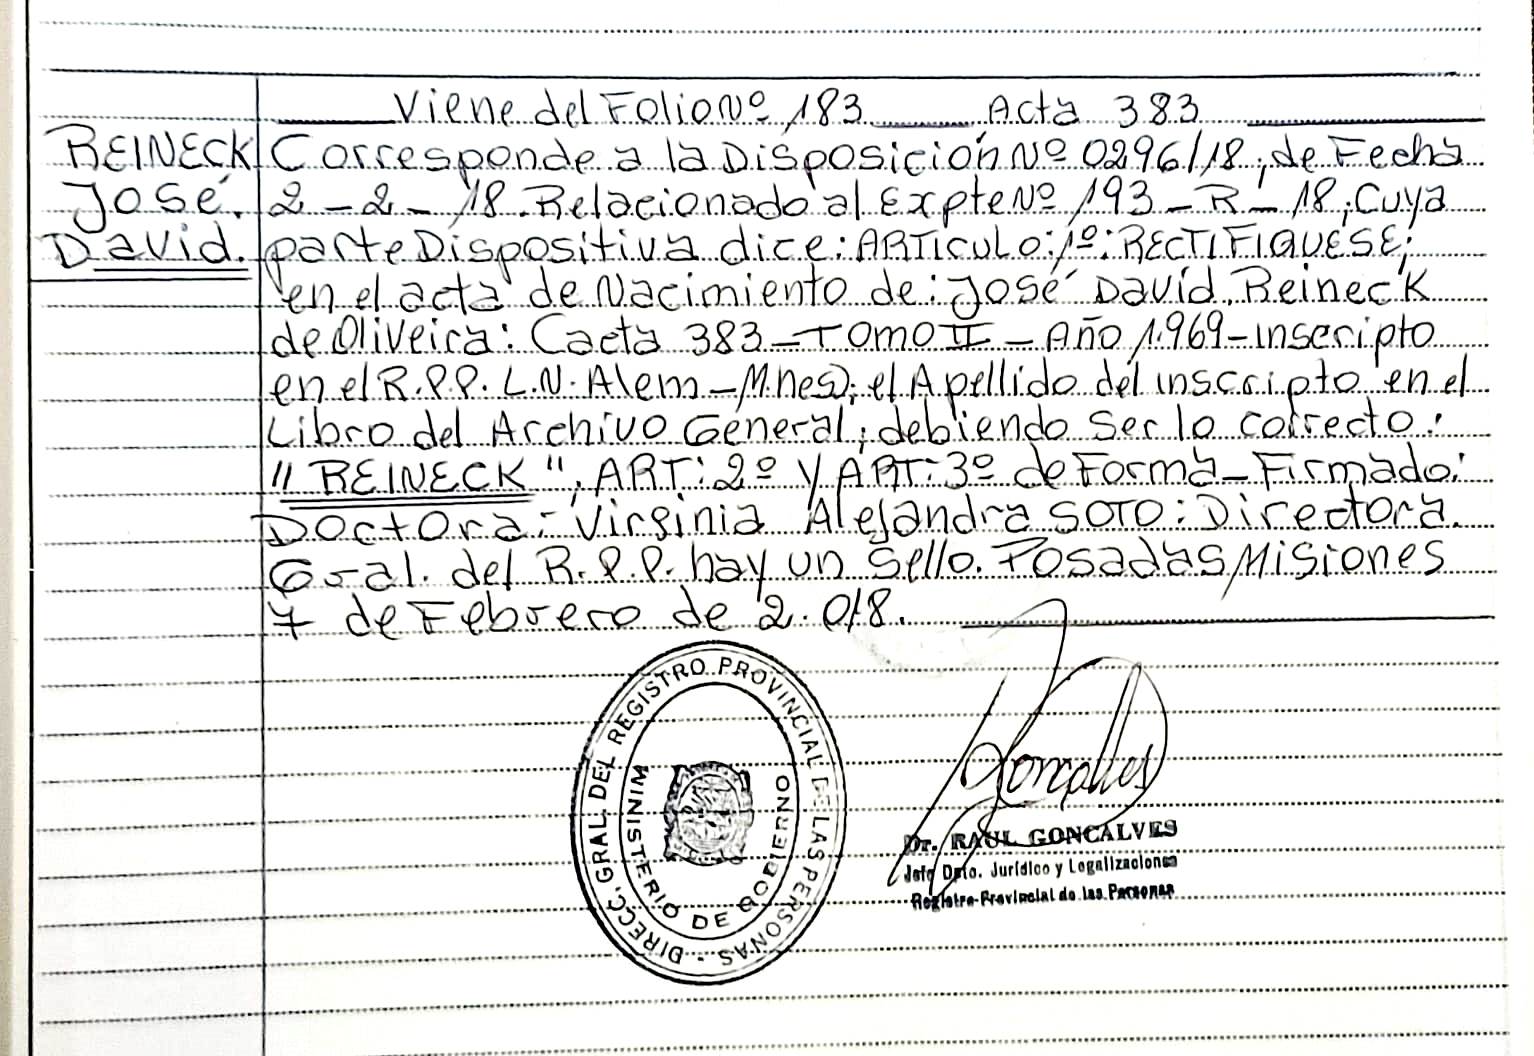 Viene del Folio Nº 183 Acta 383
REINECK
José.
David.
Corresponde a la Disposición Nº 0296/18; de Fecha
2-2-18. Relacionado al Expte Nº 193-R-18; Cuya
parte Dispositiva dice: ARTICULO: 1º: RECTIFIQUESE;
en el acta de Nacimiento de: José David, Reineck
de Oliveira: Cacta 383-TOMO II-Año 1.969-inscripto
en el R.P.P. L.N. Alem-Mnes); el Apellido del inscripto en el
Libro del Archivo General; debiendo ser lo correcto:
"REINECK", ART: 2º Y ART: 3º de Forma-Firmado:
Doctora: Virginia Alejandra SOTO: Directora.
Gral. del R.P.P. hay un sello. Posadas Misiones
7 de Febrero de 2.018.
DIRECC. GRAL. DEL REGISTRO PROVINCIAL DE LAS PERSONAS
MINISTERIO DE GOBIERNO
Goncalves
Dr. RAUL GONCALVES
Jefe Dpto. Jurídico y Legalizaciones
Registro Provincial de las Personas